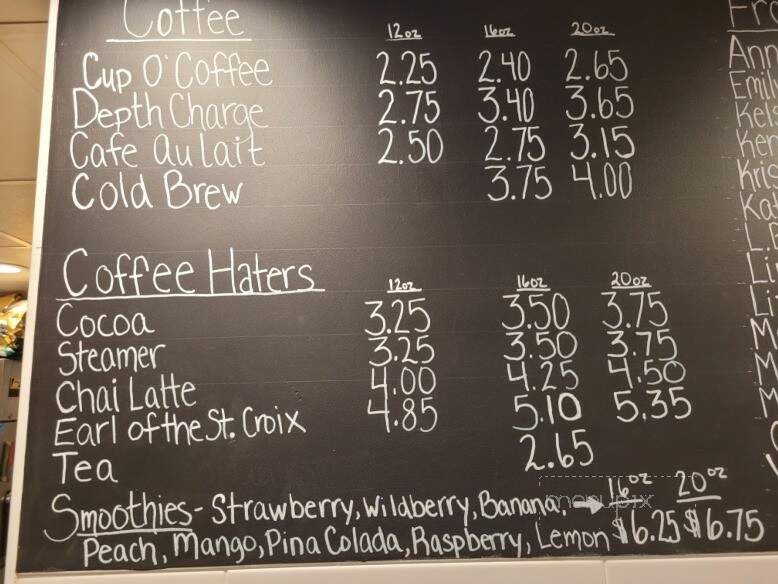 Coffee 12oz 16oz 20oz
Cup O' Coffee 2.25 2.40 2.65
Depth Charge 2.75 3.40 3.65
Cafe au lait 2.50 2.75 3.15
Cold Brew 3.75 4.00
Coffee Haters 12oz 16oz 20oz
Cocoa 3.25 3.50 3.75
Steamer 3.25 3.50 3.75
Chai Latte 4.00 4.25 4.50
Earl of the St. Croix 4.85 5.10 5.35
Tea 2.65
Smoothies - Strawberry, Wildberry, Banana, → 16oz 20oz
Peach, Mango, Pina Colada, Raspberry, Lemon $6.25 $6.75
menupix